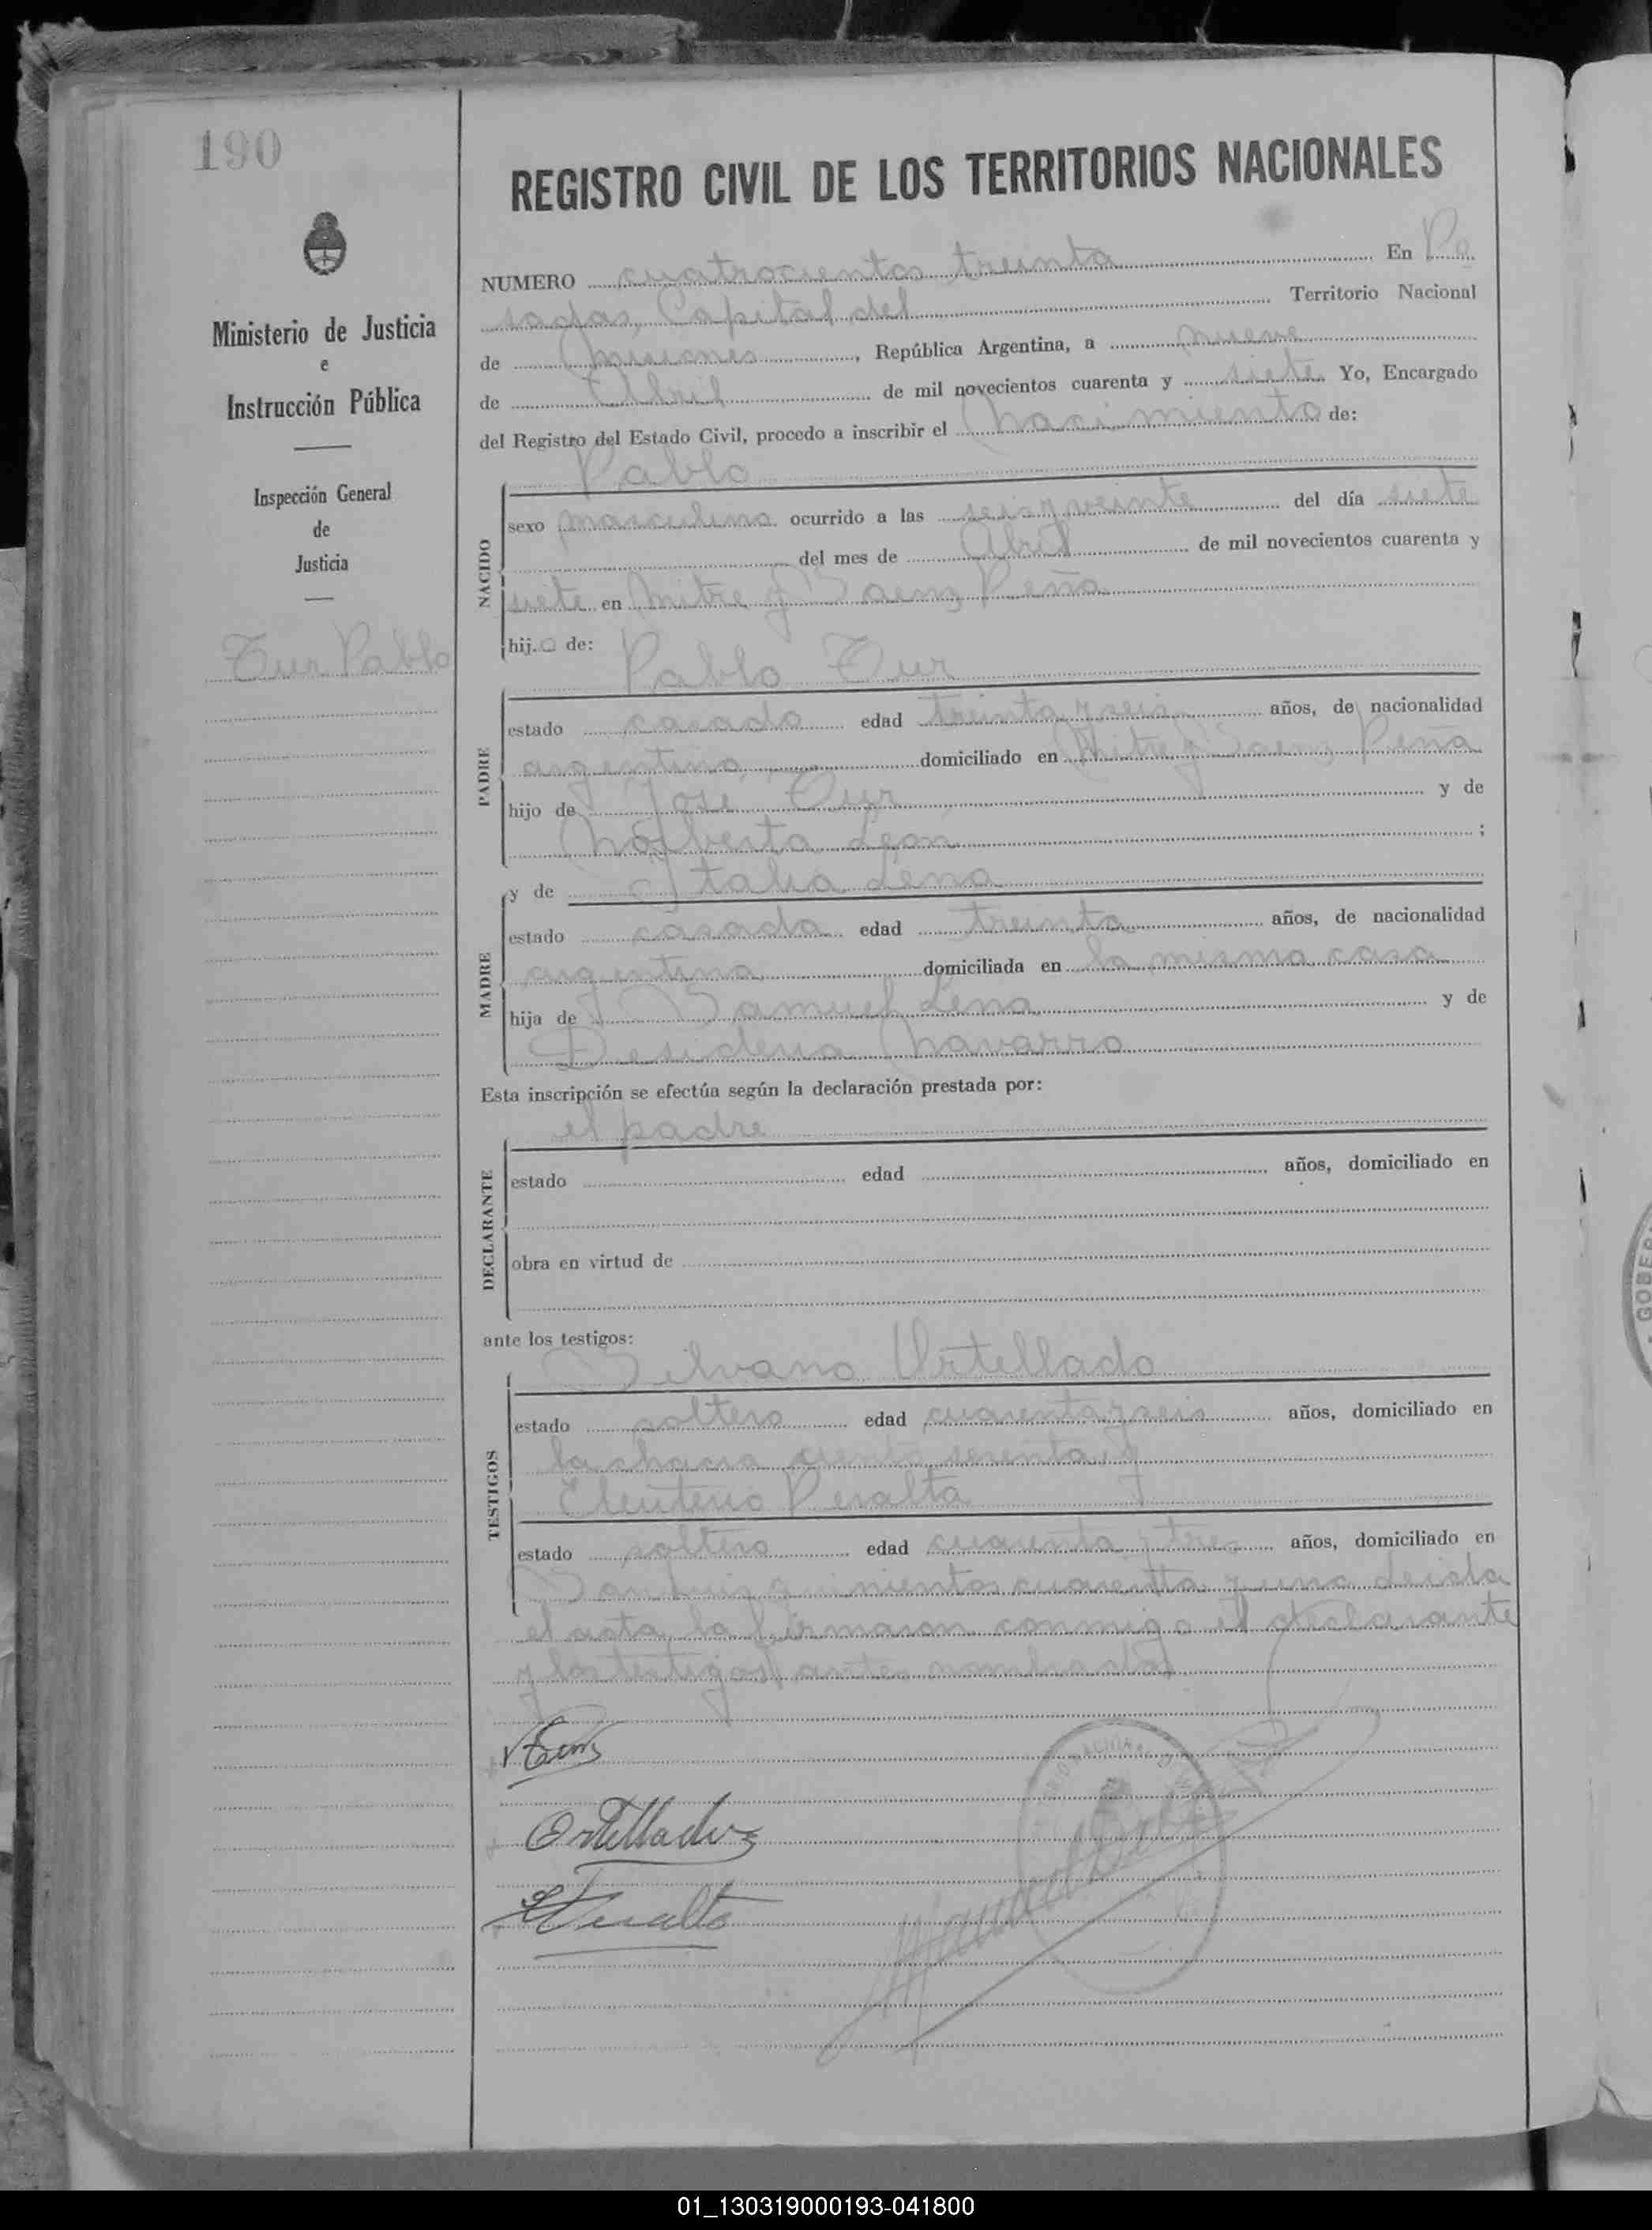 190
REGISTRO CIVIL DE LOS TERRITORIOS NACIONALES
Ministerio de Justicia
e
Instrucción Pública
Inspección General
de
Justicia
Tur Pablo
NUMERO cuatrocientos treinta En Po
sadas, Capital del Territorio Nacional
de Misiones, República Argentina, a nueve
de Abril de mil novecientos cuarenta y siete Yo, Encargado
del Registro del Estado Civil, procedo a inscribir el nacimiento de:
Pablo
NACIDO
sexo masculino ocurrido a las seis y veinte del día siete
del mes de Abril de mil novecientos cuarenta y
siete en Mitre y Saenz Peña
hijo de:
Pablo Tur
PADRE
estado casado edad treinta y seis años, de nacionalidad
argentino domiciliado en Mitre y Saenz Peña
hijo de José Tur y de
Norberta León ;
y de Italia Lena
MADRE
estado casada edad treinta años, de nacionalidad
argentina domiciliada en la misma casa
hija de Samuel Lena y de
Desideria Navarro
Esta inscripción se efectúa según la declaración prestada por:
el padre
DECLARANTE
estado edad años, domiciliado en
obra en virtud de
ante los testigos:
Silvano Ortellado
TESTIGOS
estado soltero edad cuarenta y seis años, domiciliado en
la chacra ciento sesenta y
Eleuterio Peralta
estado soltero edad cuarenta y tres años, domiciliado en
San Luis quinientos cuarenta y uno Leida
el acta la firmaron conmigo el declarante
y los testigos antes nombrados
Ortellado
EPeralta
GOBER
01_130319000193-041800